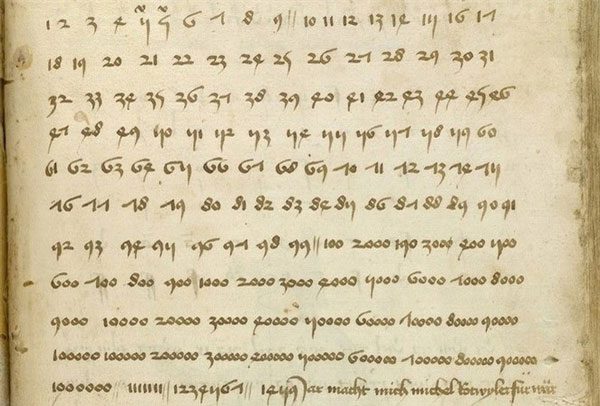 1 2 3 4 5 5 6 7 8 9 // 10 11 12 13 14 15 16 17
18 19 20 21 22 23 24 25 26 27 28 29 30 31
32 33 34 35 36 37 38 39 40 41 42 43 44 45 46
47 48 49 50 51 52 53 54 55 56 57 58 59 60
61 62 63 64 65 66 67 68 69 70 71 72 73 74 75
76 77 78 79 80 81 82 83 84 85 86 87 88 89 90 91
92 93 94 95 96 97 98 99 // 100 2000 190 3000 400 500
600 700 800 900 1000 2000 3000 4000 5000 6000 7000 8000
9000 10000 20000 30000 40000 50000 60000 70000 80000 90000
100000 100000 200000 300000 400000 500000 600000 700000 800000 900000
1000000 1111111 // 1234567 1459 Jar macht mich michel Rotwyler für war